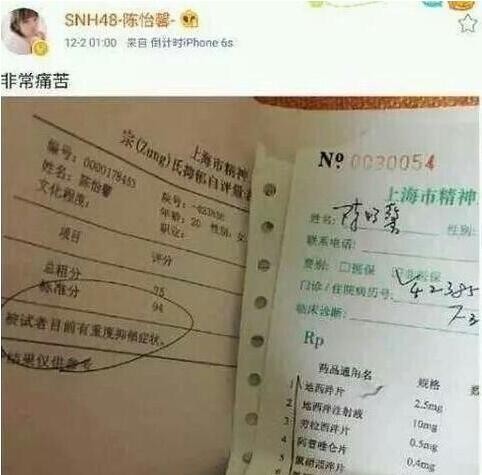 SNH48-陈怡馨-
12-2 01:00 来自 倒计时iPhone 6s
非常痛苦
上海市精神
宗(Zung)氏抑郁自评量表
编号: 0000178455
姓名: 陈怡馨
年龄: 20 性别: 女
文化程度:
职业:
项目 评分
总粗分 75
标准分 94
被试者目前有重度抑郁症状。
结果仅供参考
Nº 0030054
上海市精神
姓名: 陈怡馨 性别:
联系电话:
费别: □医保
门诊/住院病历号:
临床诊断:
Rp
药品通用名 规格
1 地西泮片 2.5mg
2 地西泮注射液 10mg
3 劳拉西泮片 0.5mg
4 阿普唑仑片 0.4mg
5 氯硝西泮片